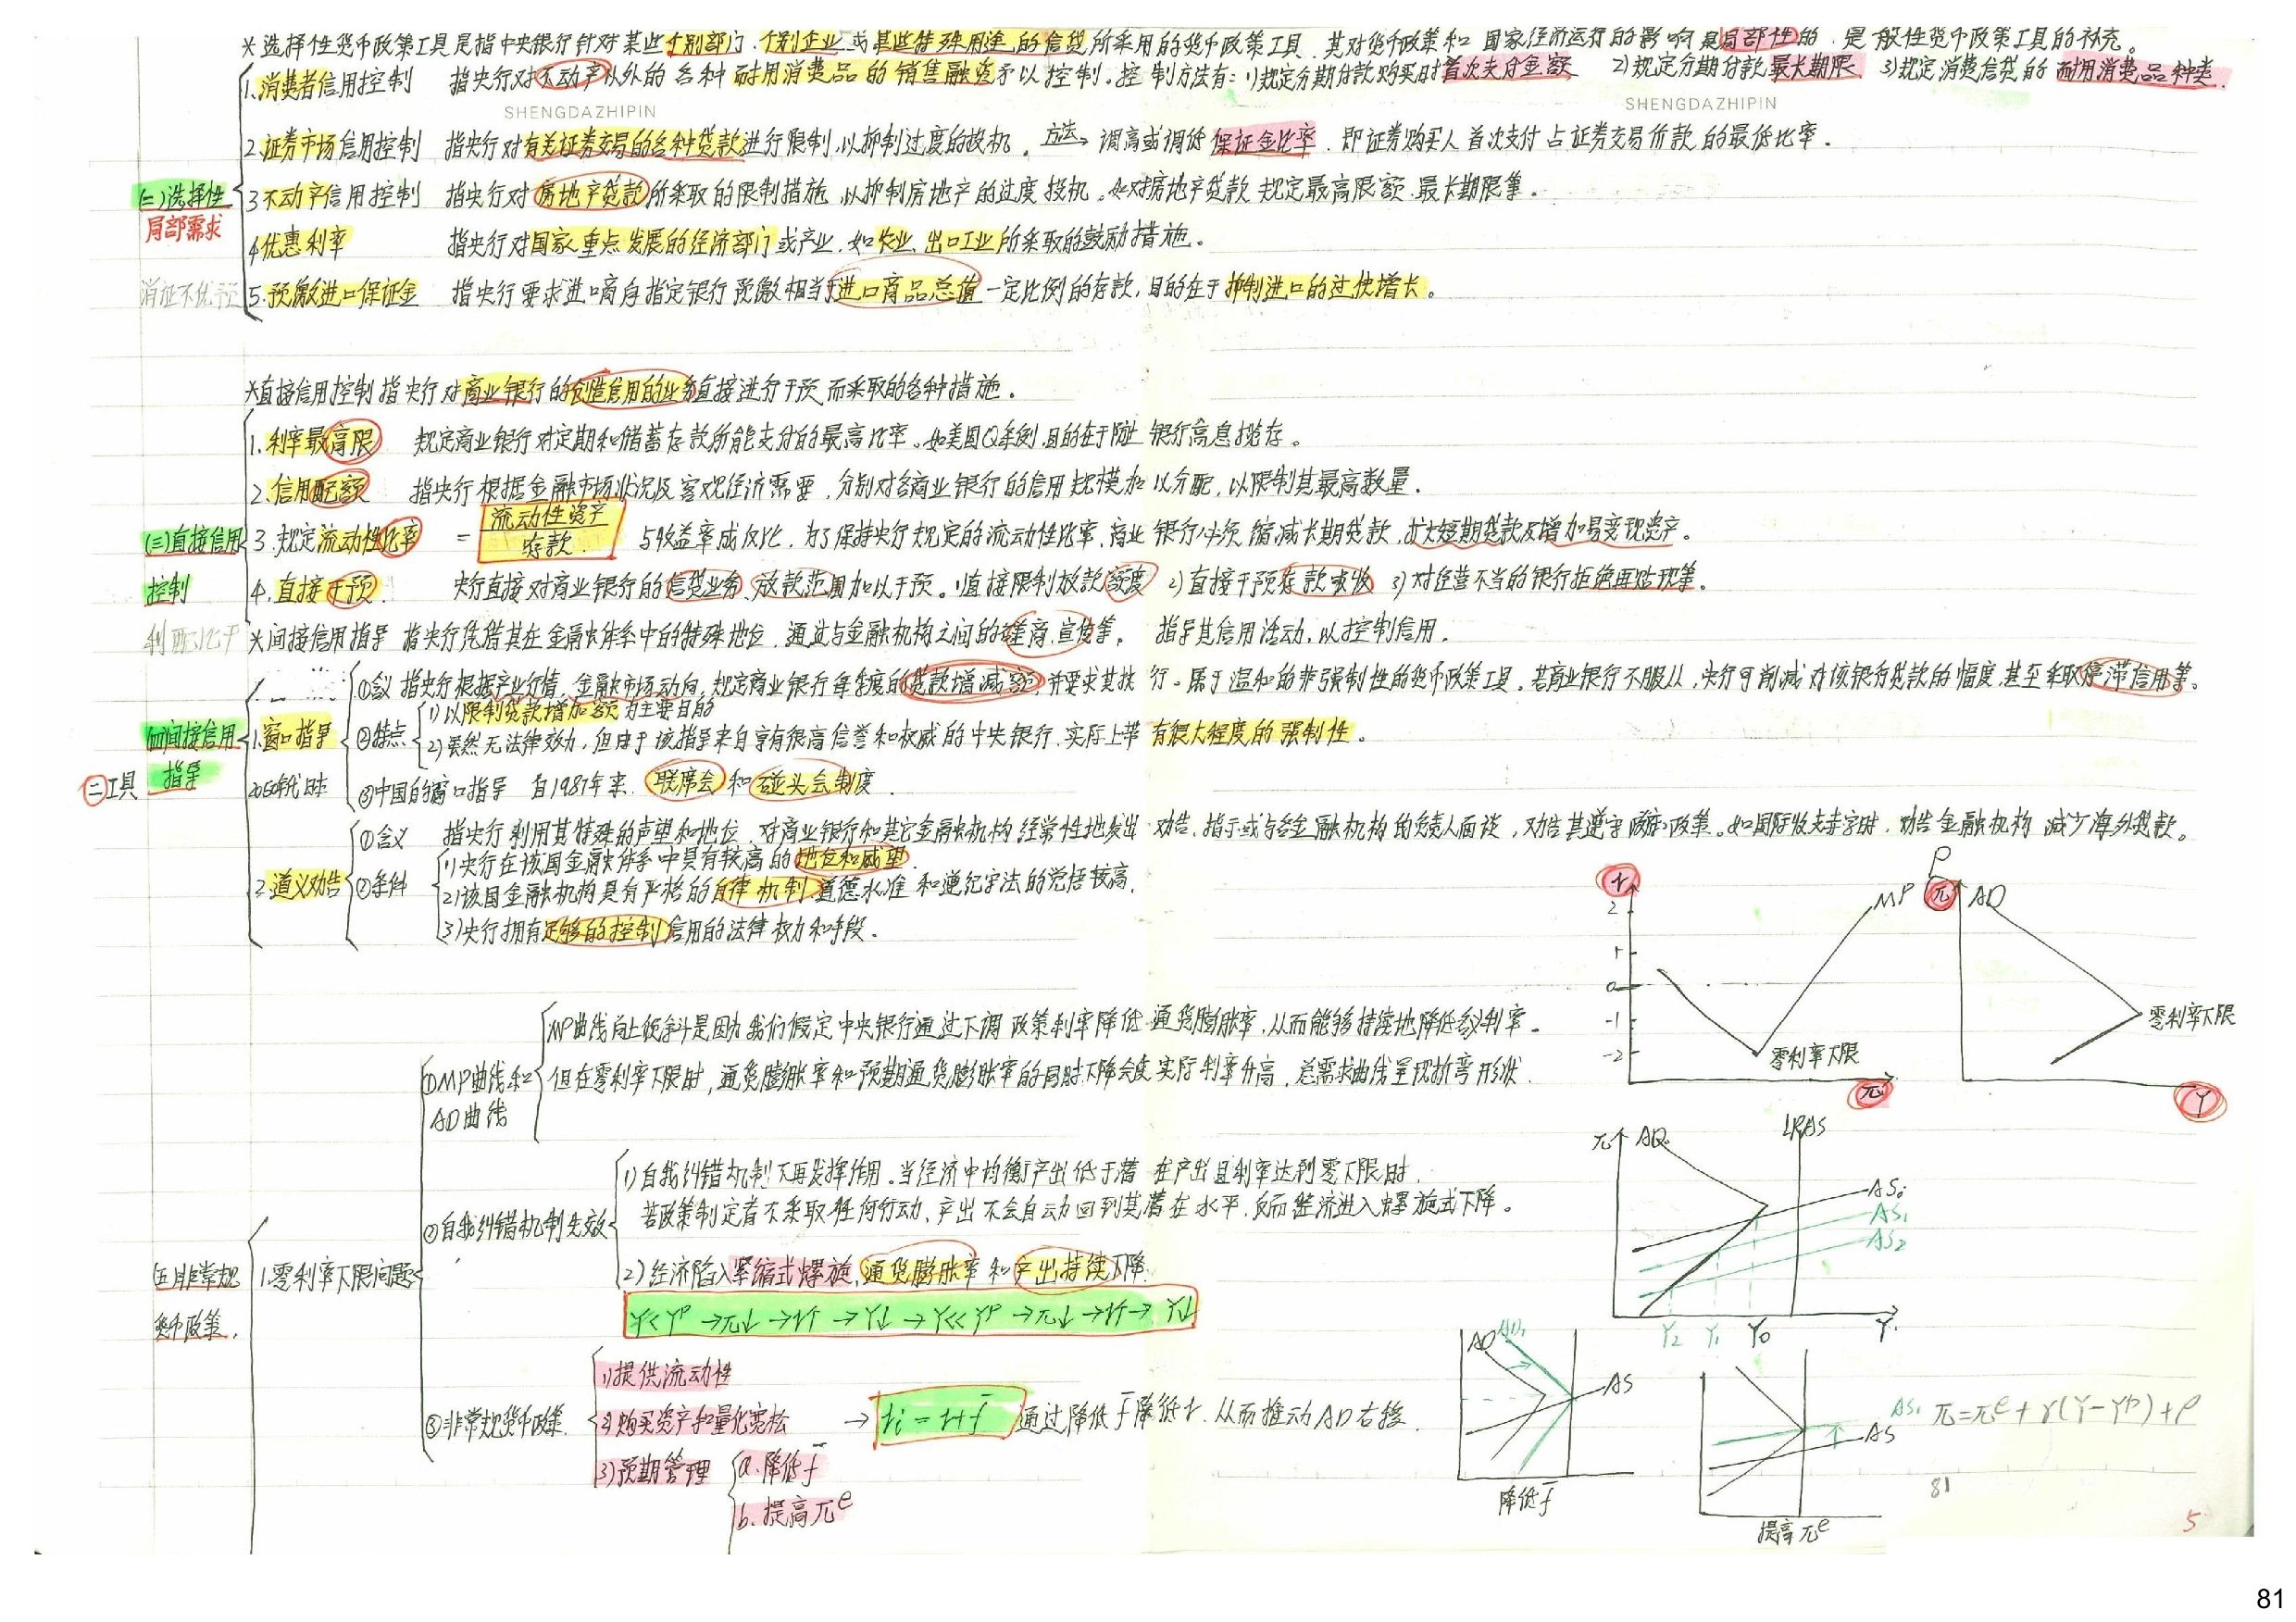 *选择性货币政策工具是指中央银行针对某些个别部门、个别企业或某些特殊用途的信贷所采用的货币政策工具,其对货币政策和国家经济运行的影响是局部性的,是一般性货币政策工具的补充。
1.消费者信用控制 指央行对不动产以外的各种耐用消费品的销售融资予以控制。控制方法有:1)规定分期付款购买时首次支付金额 2)规定分期付款最长期限 3)规定消费信贷的耐用消费品种类.
SHENGDAZHIPIN SHENGDAZHIPIN
2.证券市场信用控制 指央行对有关证券交易的各种贷款进行限制,以抑制过度的投机。方法→调高或调低保证金比率.即证券购买人首次支付占证券交易价款的最低比率.
(二)选择性 3.不动产信用控制 指央行对房地产贷款所采取的限制措施,以抑制房地产的过度投机。如对房地产贷款规定最高限额.最长期限等。
局部需求
4.优惠利率 指央行对国家重点发展的经济部门或产业.如农业、出口工业所采取的鼓励措施。
消证不优预 5.预缴进口保证金 指央行要求进口商向指定银行预缴相当于进口商品总值一定比例的存款,目的在于抑制进口的过快增长。
*直接信用控制指央行对商业银行的创造信用的业务直接进行干预而采取的各种措施。
1.利率最高限 规定商业银行对定期和储蓄存款所能支付的最高比率。如美国Q条例.目的在于防止银行高息揽存。
2.信用配额 指央行根据金融市场状况及客观经济需要,分别对各商业银行的信用规模加以分配,以限制其最高数量.
(三)直接信用 3.规定流动性比率 = 流动性资产/存款 与收益率成反比.为了保持央行规定的流动性比率,商业银行必须缩减长期贷款,扩大短期贷款及增加易变现资产。
控制 4.直接干预. 央行直接对商业银行的信贷业务、放款范围加以干预。1)直接限制放款额度 2)直接干预存款吸收 3)对经营不当的银行拒绝再贴现等.
利配比干 *间接信用指导 指央行凭借其在金融体系中的特殊地位,通过与金融机构之间的磋商、宣传等,指导其信用活动,以控制信用.
①含义 指央行根据产业行情、金融市场动向,规定商业银行每季度的贷款增减额,并要求其执行。属于温和的非强制性的货币政策工具.若商业银行不服从,央行可削减对该银行贷款的幅度,甚至采取停滞信用等。
1)以限制贷款增加额为主要目的
(四)间接信用 1.窗口指导 ②特点 2)虽然无法律效力,但由于该指导来自享有很高信誉和权威的中央银行.实际上带有很大程度的强制性。
二工具 指导 ③中国的窗口指导 自1987年来.联席会和碰头会制度.
①含义 指央行利用其特殊的声望和地位,对商业银行和其它金融机构经常性地发出劝告、指示或与各金融机构的负责人面谈,劝告其遵守政府政策。如国际收支赤字时,劝告金融机构减少海外贷款。
1)央行在该国金融体系中具有较高的地位和威望.
2.道义劝告 ②条件 2)该国金融机构具有严格的自律机制.道德水准和遵纪守法的觉悟较高.
3)央行拥有足够的控制信用的法律权力和手段.
r 2 1 0 -1 -2 MP 零利率下限 π
P π AD 零利率下限 Y
MP曲线向上倾斜是因为我们假定中央银行通过下调政策利率降低通货膨胀率,从而能够持续地降低名义利率。
①MP曲线和 但在零利率下限时,通货膨胀率和预期通货膨胀率的同时下降会使实际利率升高,总需求曲线呈现折弯形状.
AD曲线
π AD LRAS AS₀ AS₁ AS₂ Y₂ Y₁ Y₀ Y
1)自我纠错机制不再发挥作用.当经济中均衡产出低于潜在产出且利率达到零下限时.
若政策制定者不采取任何行动、产出不会自动回到其潜在水平,反而经济进入螺旋式下降。
②自我纠错机制失效
(五)非常规 1.零利率下限问题 2)经济陷入紧缩式螺旋,通货膨胀率和产出持续下降.
货币政策. Y<Yᴾ→π↓→r↑→Y↓→Y<<Yᴾ→π↓→r↑→Y↓
1)提供流动性
③非常规货币政策. 2)购买资产和量化宽松 → rᵢ=r+f̄ 通过降低f̄降低r.从而推动AD右移.
3)预期管理 a.降低f̄
b.提高πᵉ
AD AD₁ AS 降低f̄
AS₁ AS 提高πᵉ
π=πᵉ+γ(Y-Yᴾ)+ρ
81
5
81